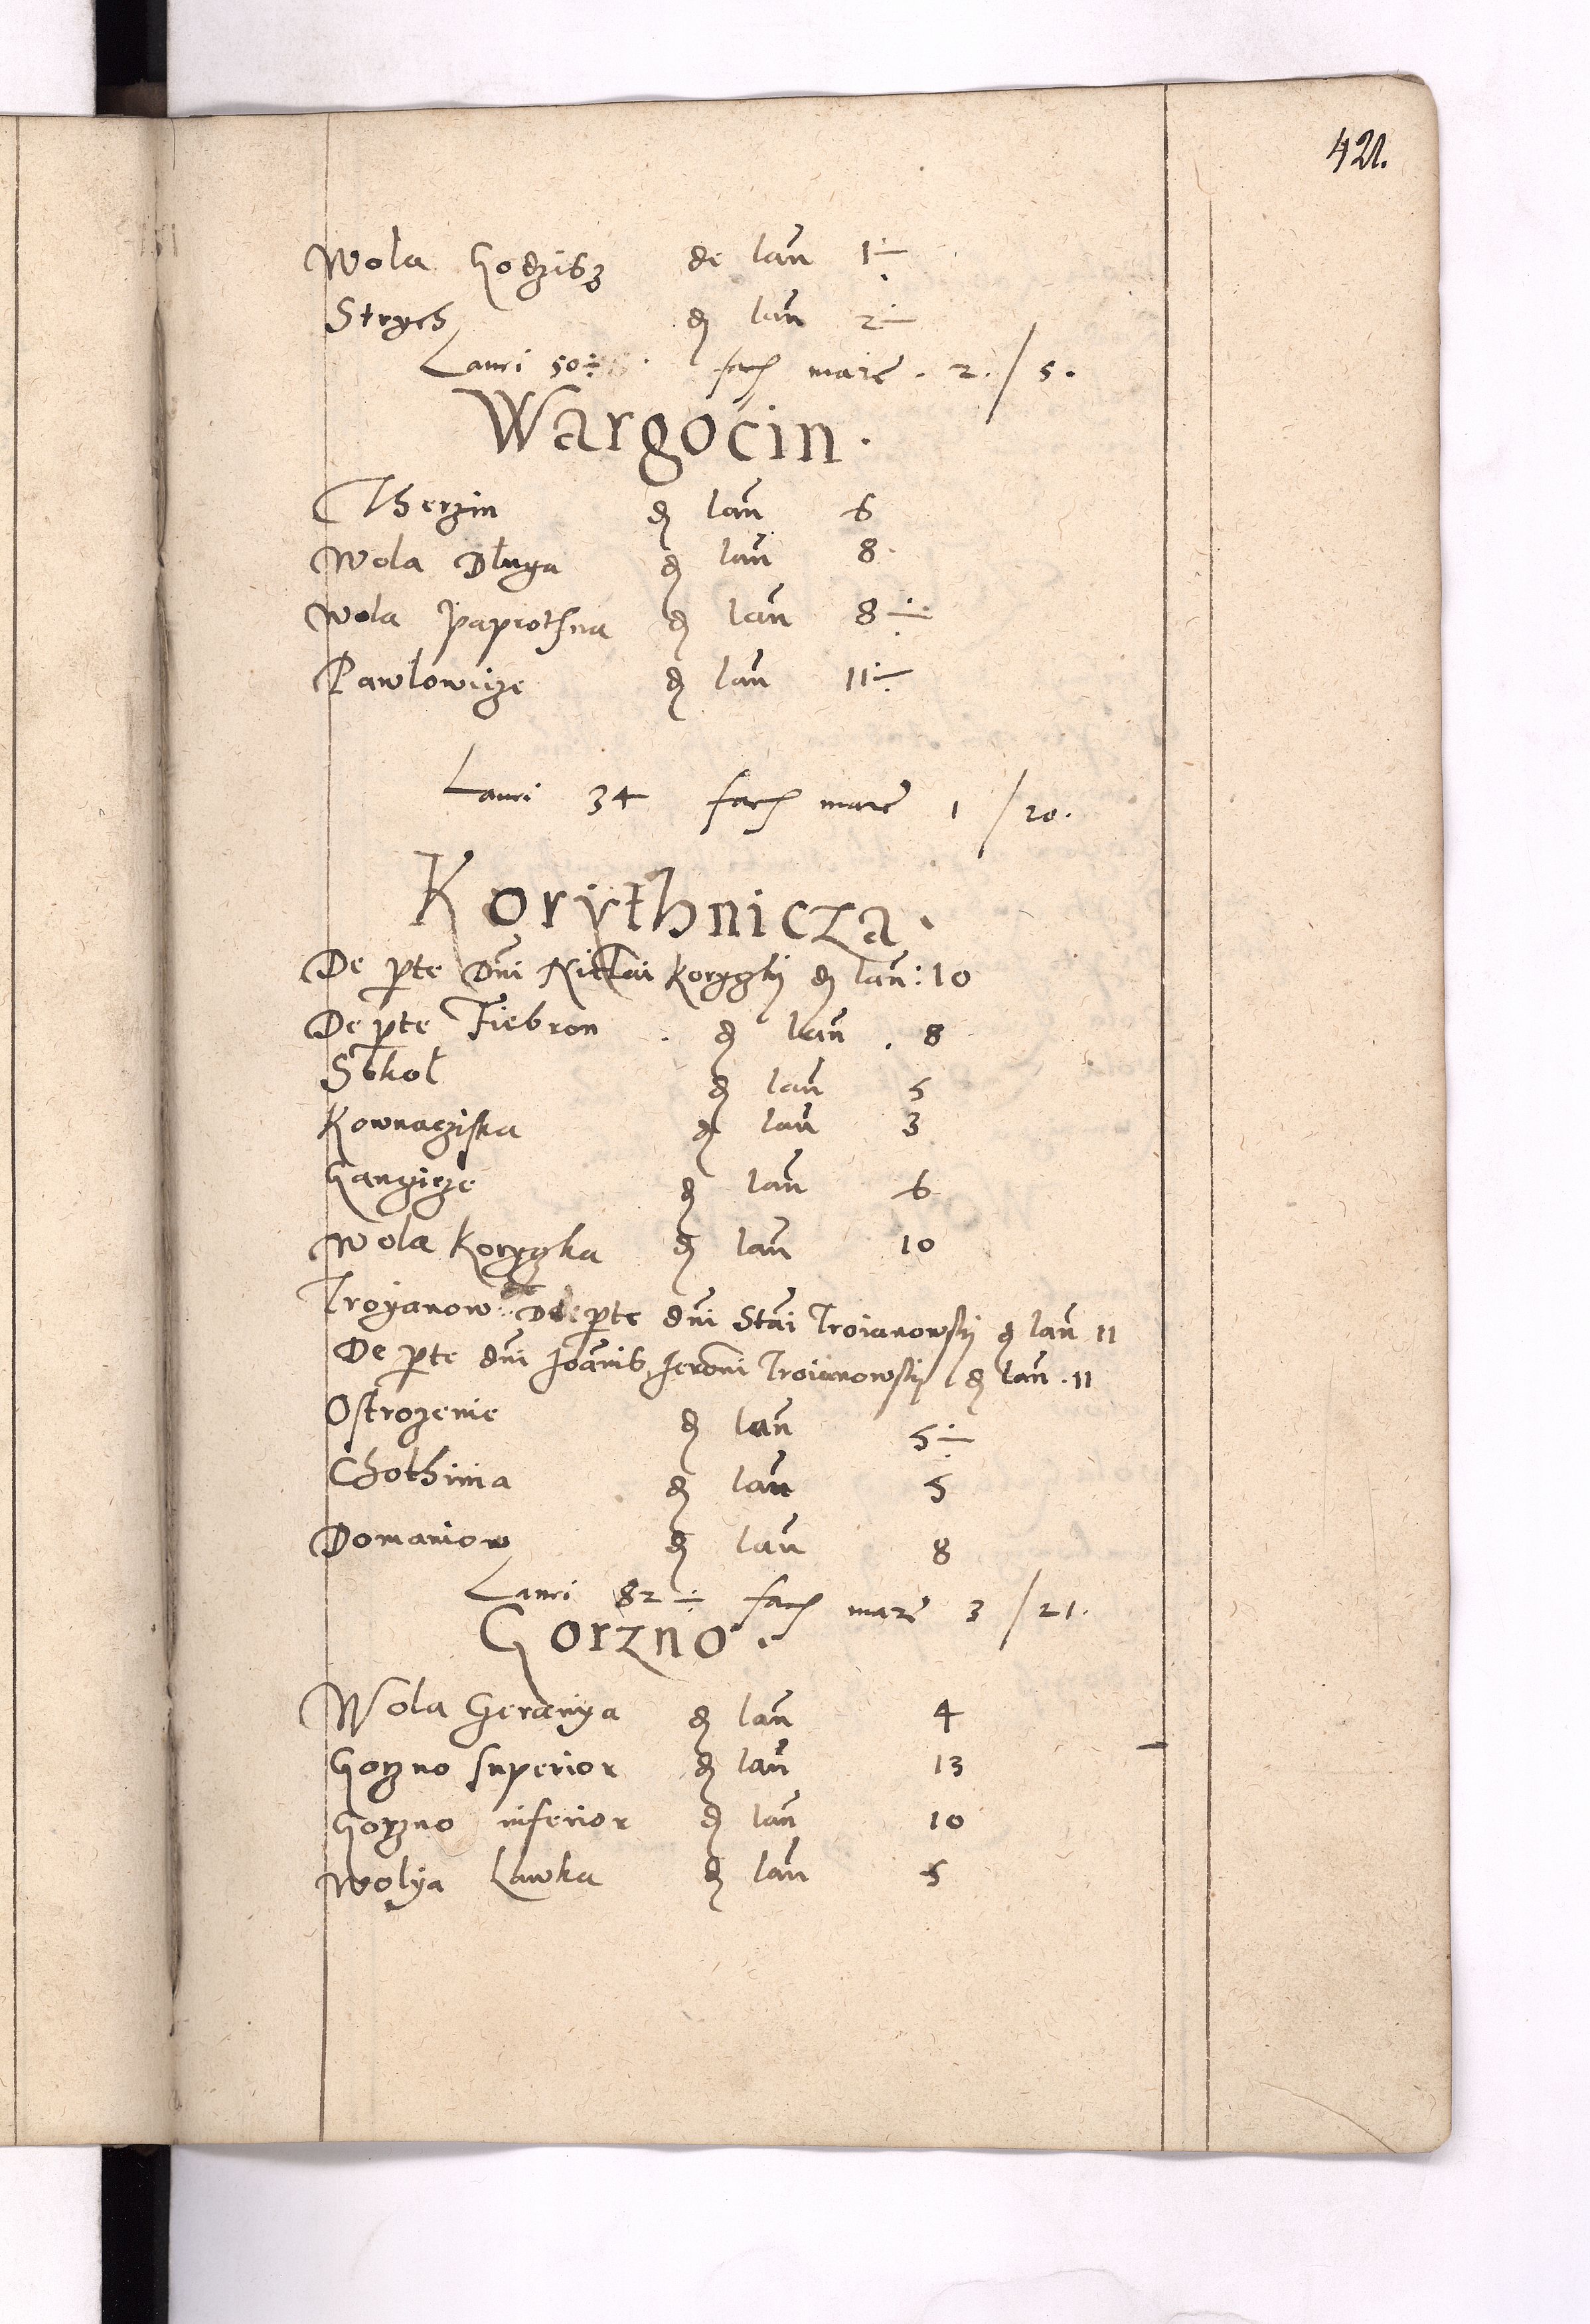 421.
Wola Godzisz de lan̄ 1 ÷
Strych de lan̄ 2 ÷
Lanei 50 ÷ fac̄ marc̄ . 2. / 5.
Wargocin.
Therzin de lan̄ 6
Wola Dluga de lan̄ 8
Wola Paprothna de lan̄ 8 ÷
Pawlowicze de lan̄ 11 ÷
Lanei 34 fac̄ marc̄ 1 / 20.
Korythnicza.
De pr̄te Dn̄i Nicłai Koryczky de lan̄: 10
De pr̄te Fiebron . de lan̄ . 8
Sokol de lan̄ 5
Kownaciska de lan̄ 3
Gancicze de lan̄ 6
Wola Koryczka de lan̄ 10
Troyanow: De pr̄te dn̄i Stan̄i Troianowsky de lan̄ 11
De pr̄te dn̄i Joānis, Jeron̄i Troianowsky de lan̄ . 11
Ostrozenie de lan̄ 5 ÷
Chothinia de lan̄ 5
Domaniow de lan̄ 8
Lanei 82 ÷ fac̄ marc̄ 3 / 21.
Gorzno.
Wola de lan̄ 4
Gorzno superior de lan̄ 13
Gorzno inferior de lan̄ 10
Wolya Lawka de lan̄ 5